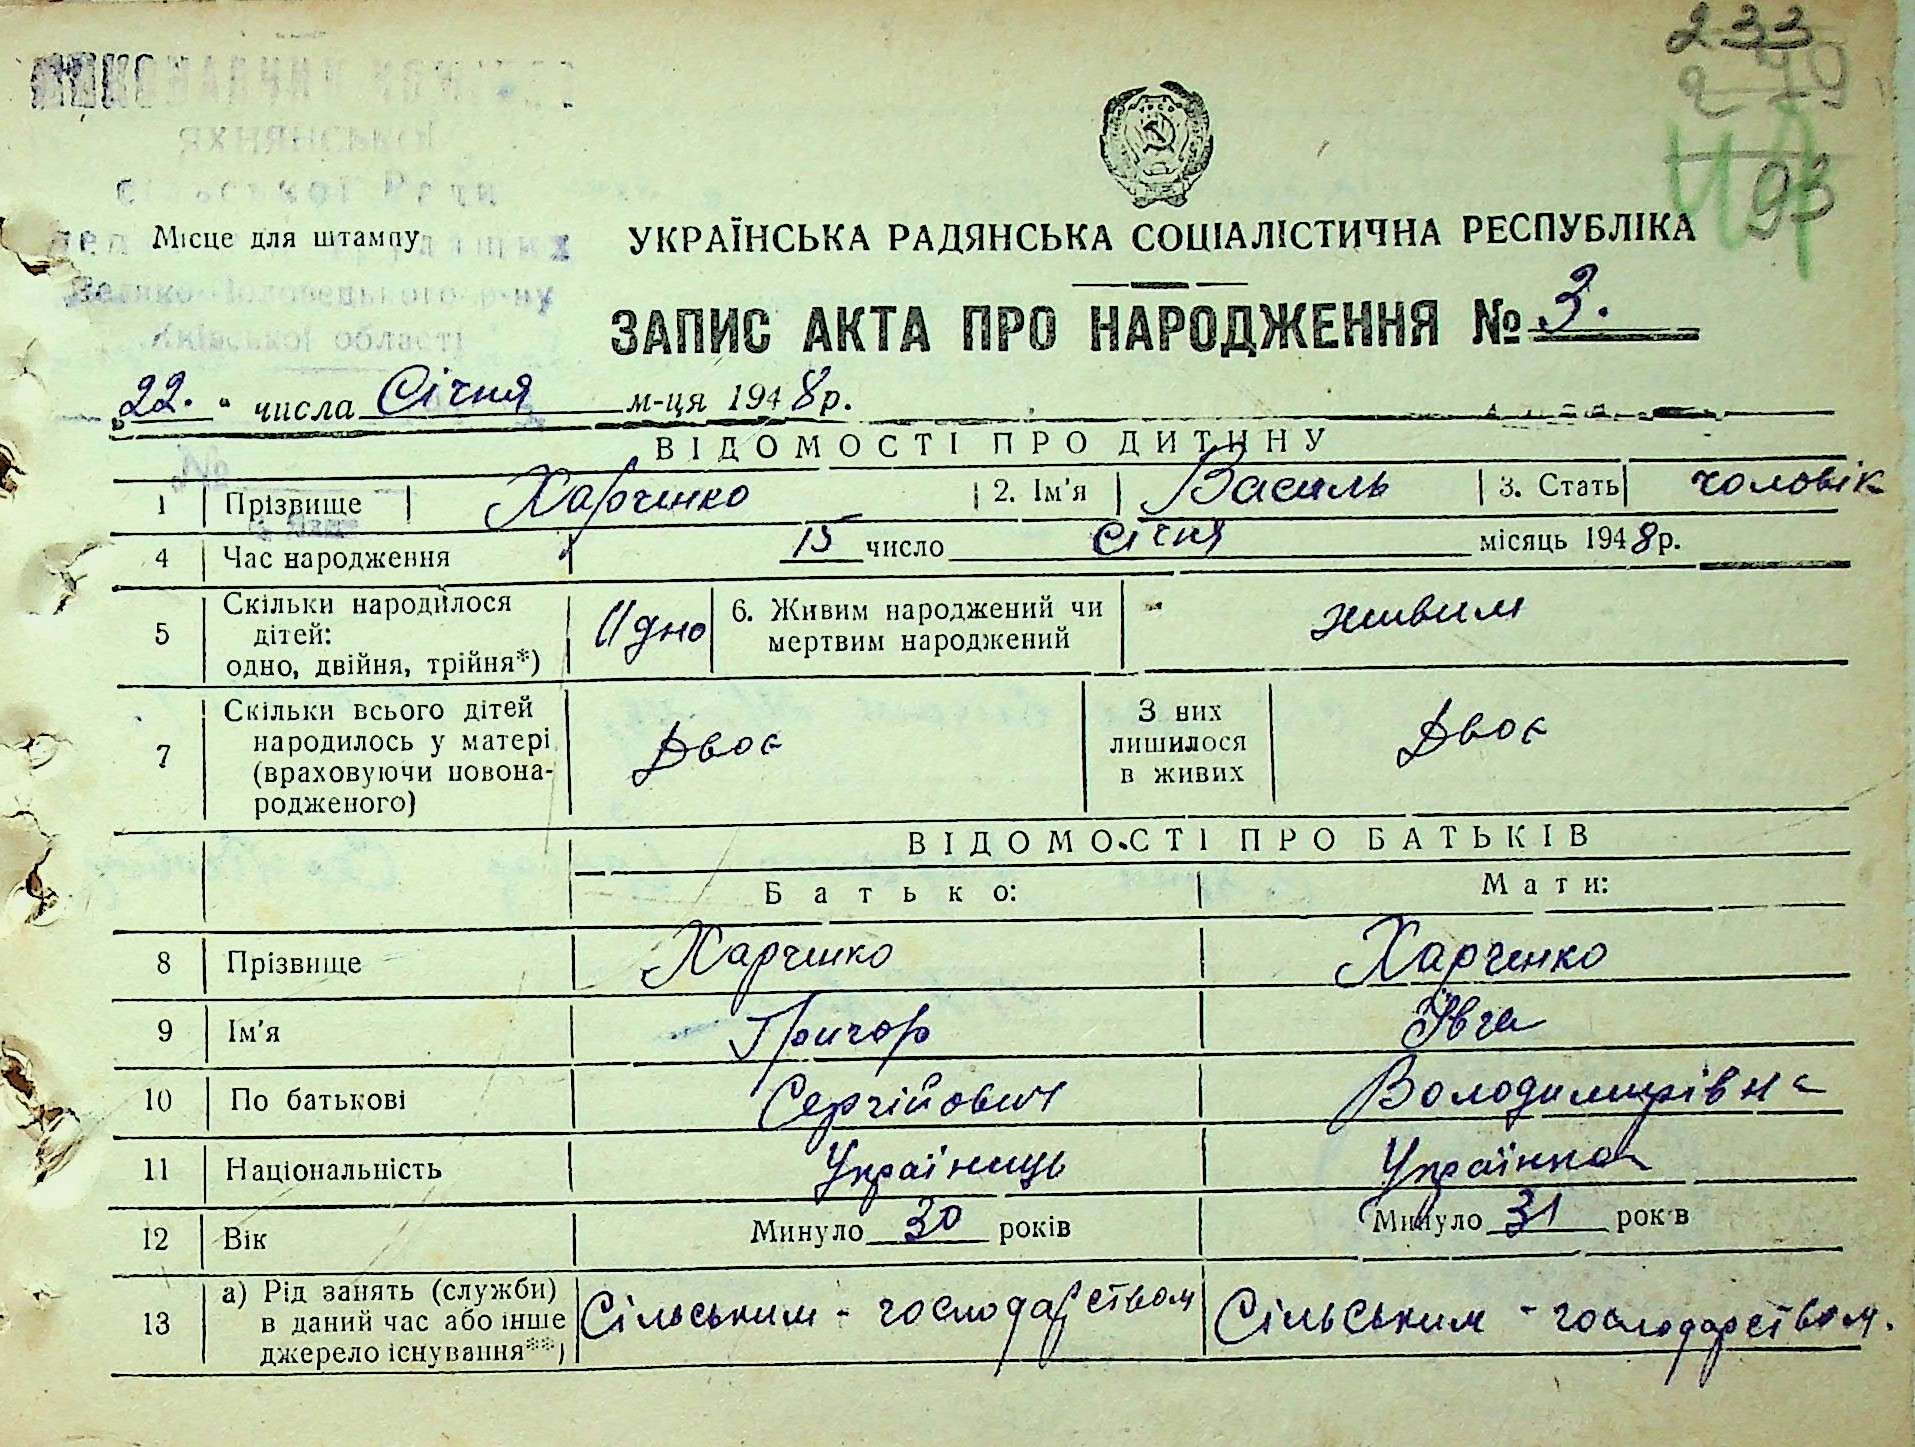 233
93
ЯХНЯНСЬКОЇ
сільської Ради
Місце для штампу
Велико-Половецького р-ну
Київської області
УКРАЇНСЬКА РАДЯНСЬКА СОЦІАЛІСТИЧНА РЕСПУБЛІКА
ЗАПИС АКТА ПРО НАРОДЖЕННЯ № 3.
„22." числа Січня м-ця 1948р.
ВІДОМОСТІ ПРО ДИТИНУ
1 Прізвище Харченко 2. Ім'я Василь 3. Стать чоловік
4 Час народження 15 число Січня місяць 1948р.
5 Скільки народилося дітей: одно, двійня, трійня*) Одно 6. Живим народжений чи мертвим народжений живим
7 Скільки всього дітей народилось у матері (враховуючи новонародженого) Двоє З них лишилося в живих Двоє
ВІДОМОСТІ ПРО БАТЬКІВ
Батько: Мати:
8 Прізвище Харченко Харченко
9 Ім'я Григор Ївга
10 По батькові Сергійович Володимирівна
11 Національність Українець Українка
12 Вік Минуло 30 років Минуло 31 років
13 а) Рід занять (служби) в даний час або інше джерело існування**) Сільським - господарством Сільським - господарством.